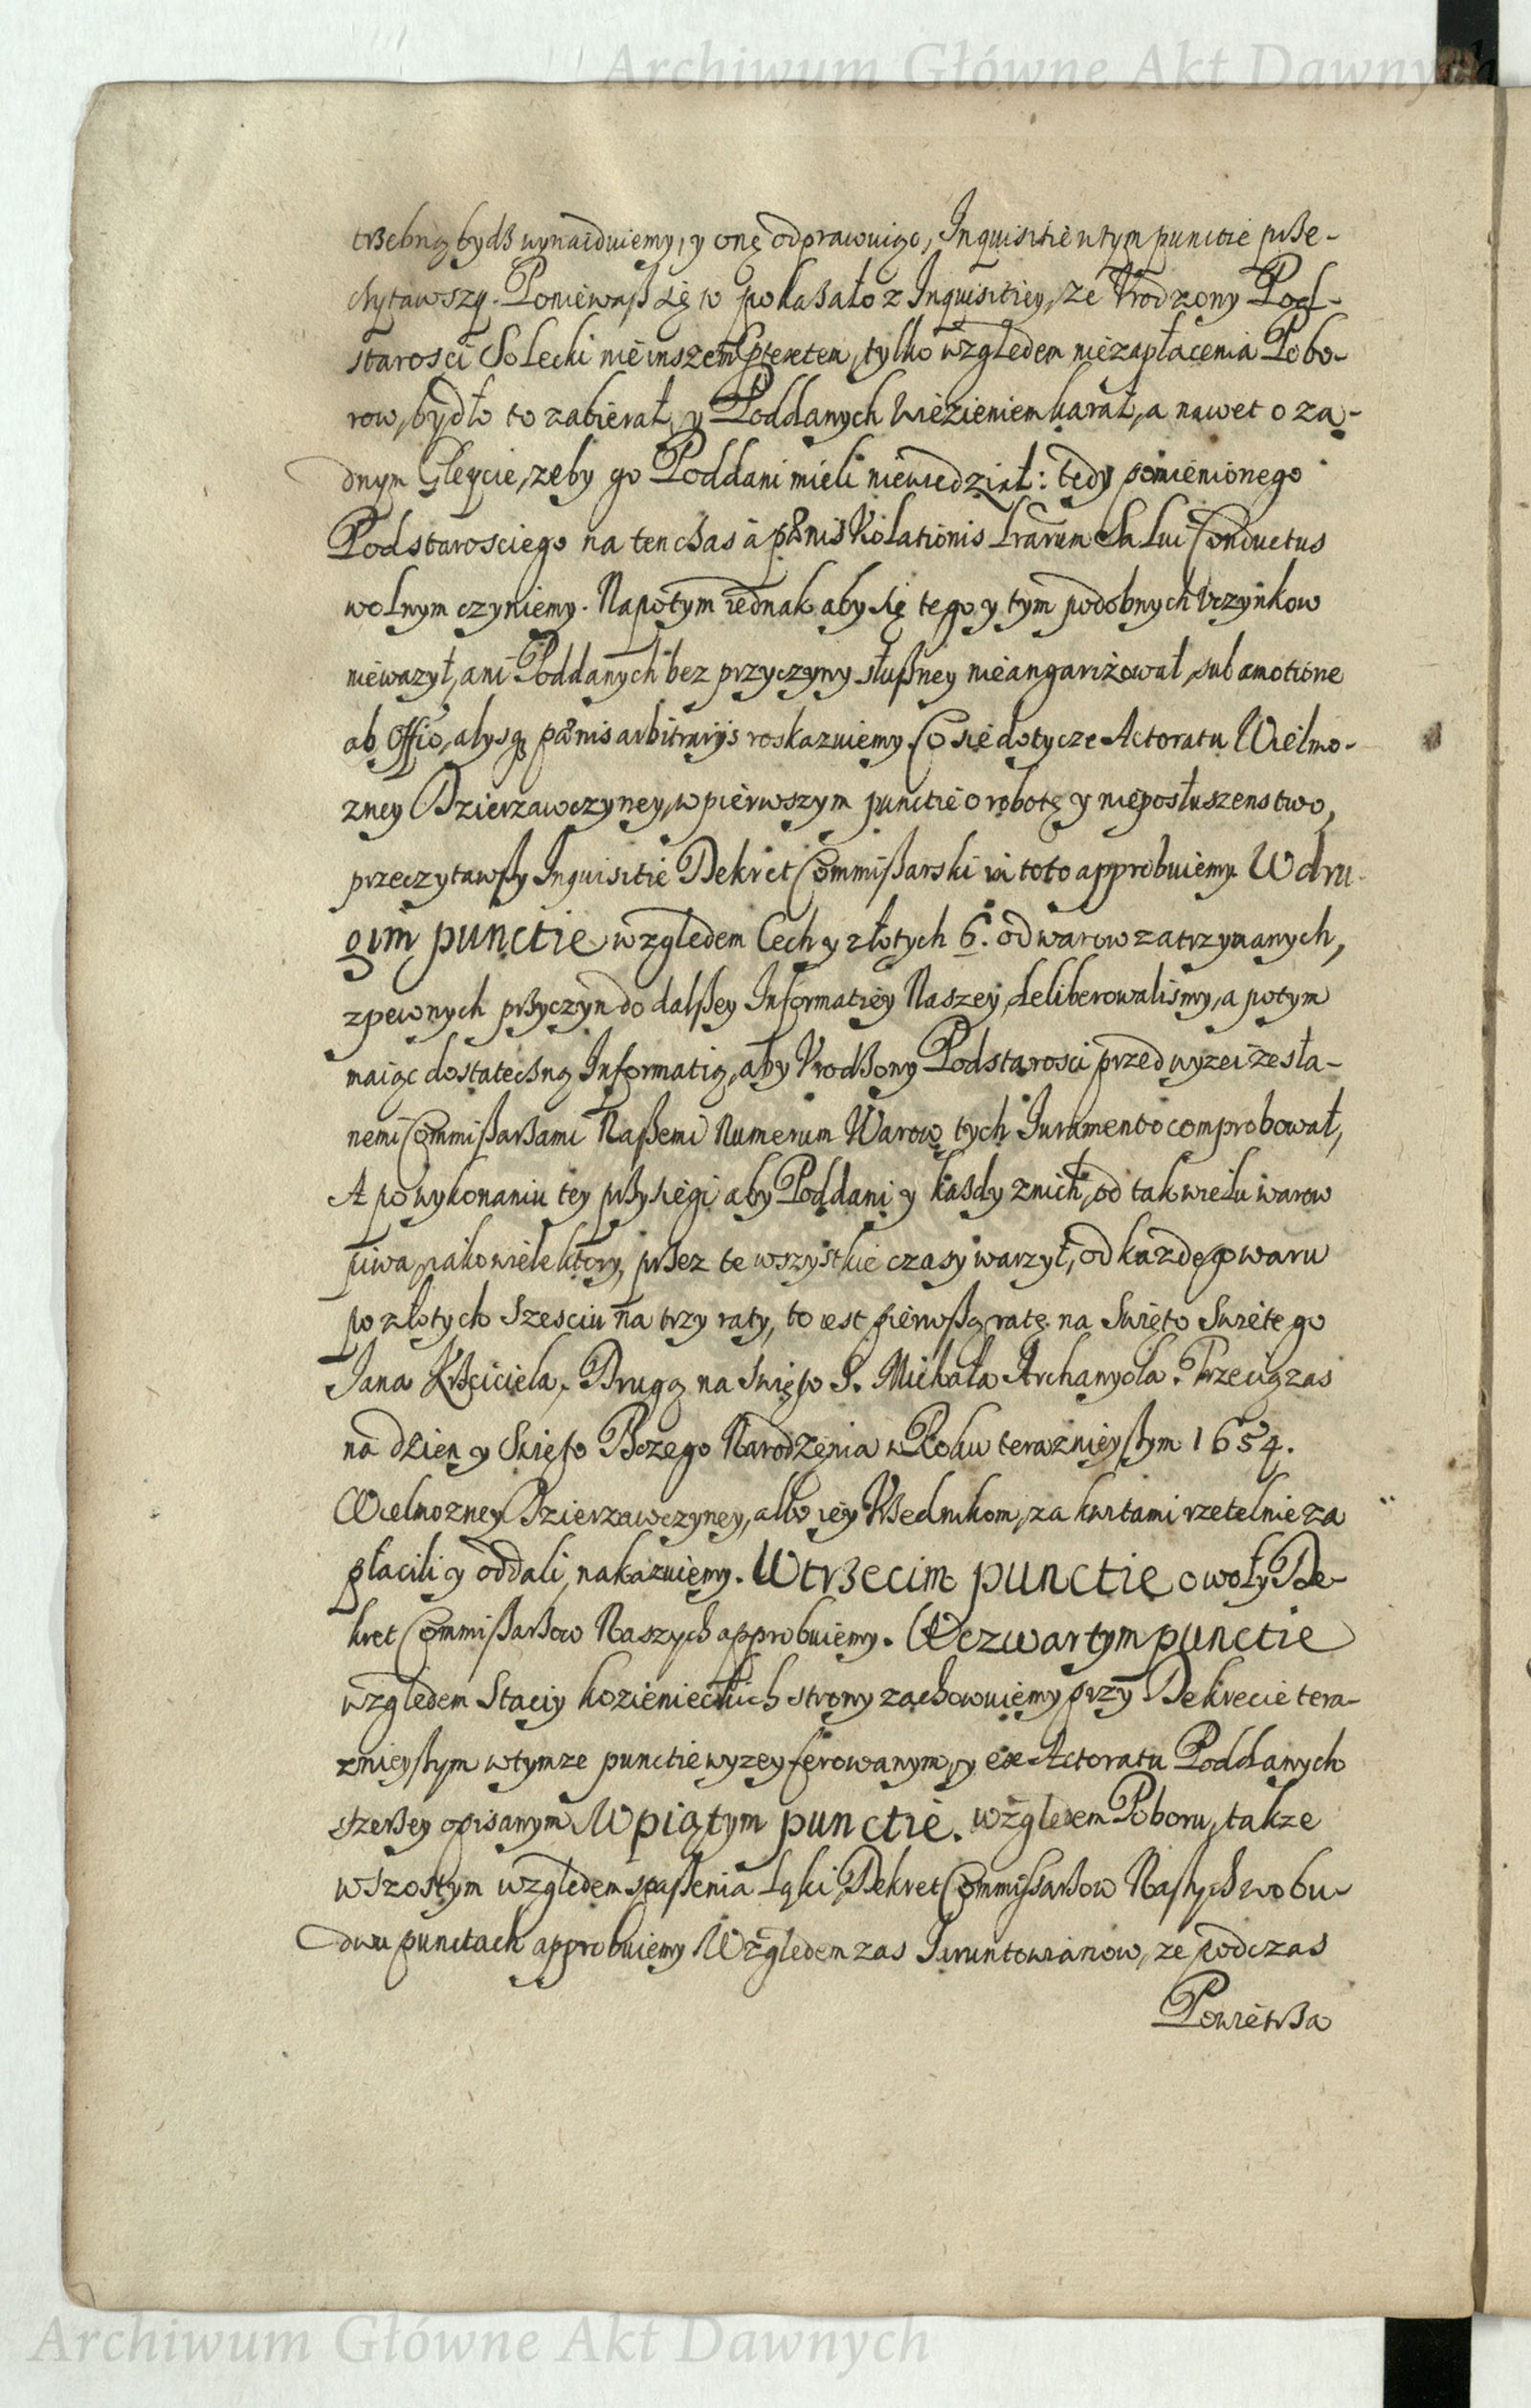 Archiwum Główne Akt Dawnych
trzebną bydź wynaiduiemy, y onę odprawuiąc, Inquisitie w tym punctie prze-
czytawszy. Poniewasz się to pokazało z Inquisitiey, ze Vrodzony Pod-
starosci Solecki nie inszem ptextem, tylko względem niezapłacenia Pobo-
row, bydło to zabierał, y Poddanych więzieniem karał, a nawet o ża-
dnym Gleycie, zeby go Poddani mieli niewiedział: tedy pomienionego
Podstarosciego na ten czas à pœnis Violationis Lrarum Salui Conductus
wolnym czyniemy. Napotym iednak aby się tego y tym podobnych Vczynkow
niewazył, ani Poddanych bez przyczyny słuszney nieangariżował, sub amotione
ab Offio, alysq pœnis arbitrarijs roskazuiemy. Co się dotycze Actoratu Wielmo-
zney Dzierzawczyney, w pierwszym punctie o robotę y nieposłuszenstwo,
przeczytawszy Inquisitie Dekret Commissarski in toto approbuiemy. W dru-
gim punctie względem Cechy złotych 6. od warow zatrzymanych,
z pewnych przyczyn do dalszey Informatiey Naszey deliberowalismy, a potym
maiąc dostateczną Informatią, aby Vrodzony Podstarosci przed wyzei zesła-
nemi Commissarzami Naszemi Numerum Warow tych Iuramento comprobował,
A po wykonaniu tey przysięgi aby Poddani y kazdy z nich, od tak wielu warow
piwa, iako wiele ktory, przez te wszystkie czasy warzył, od kazdego waru
po złotych szesciu na trzy raty, to iest pierwszą ratę na Swięto Swiętego
Jana Krzciciela, Drugą na Swięto S. Michała Archanyoła. Trzecią zas
na dzien y Swięto Bozego Narodzenia w Roku teraznieyszym 1654.
Wielmozney Dzierzawczyney, albo iey Vrzędnikom, za kwitami rzetelnie za
płacili y oddali, nakazuiemy. W trzecim punctie o woły De-
kret Commissarzow Naszych approbuiemy. W czwartym punctie
względem Staciy kozienieckich strony zachowuiemy przy Dekrecie tera-
znieyszym w tymze punctie wyzey ferowanym, y ex Actoratu Poddanych
szerzey opisanym. W piątym punctie. względem Poboru, takze
w szostym względem spaszenia Łąki, Dekret Commissarzow Naszych w obu-
dwu punctach approbuiemy. Względem zas Gruntowianow, ze podczas
Powietrza
Archiwum Główne Akt Dawnych